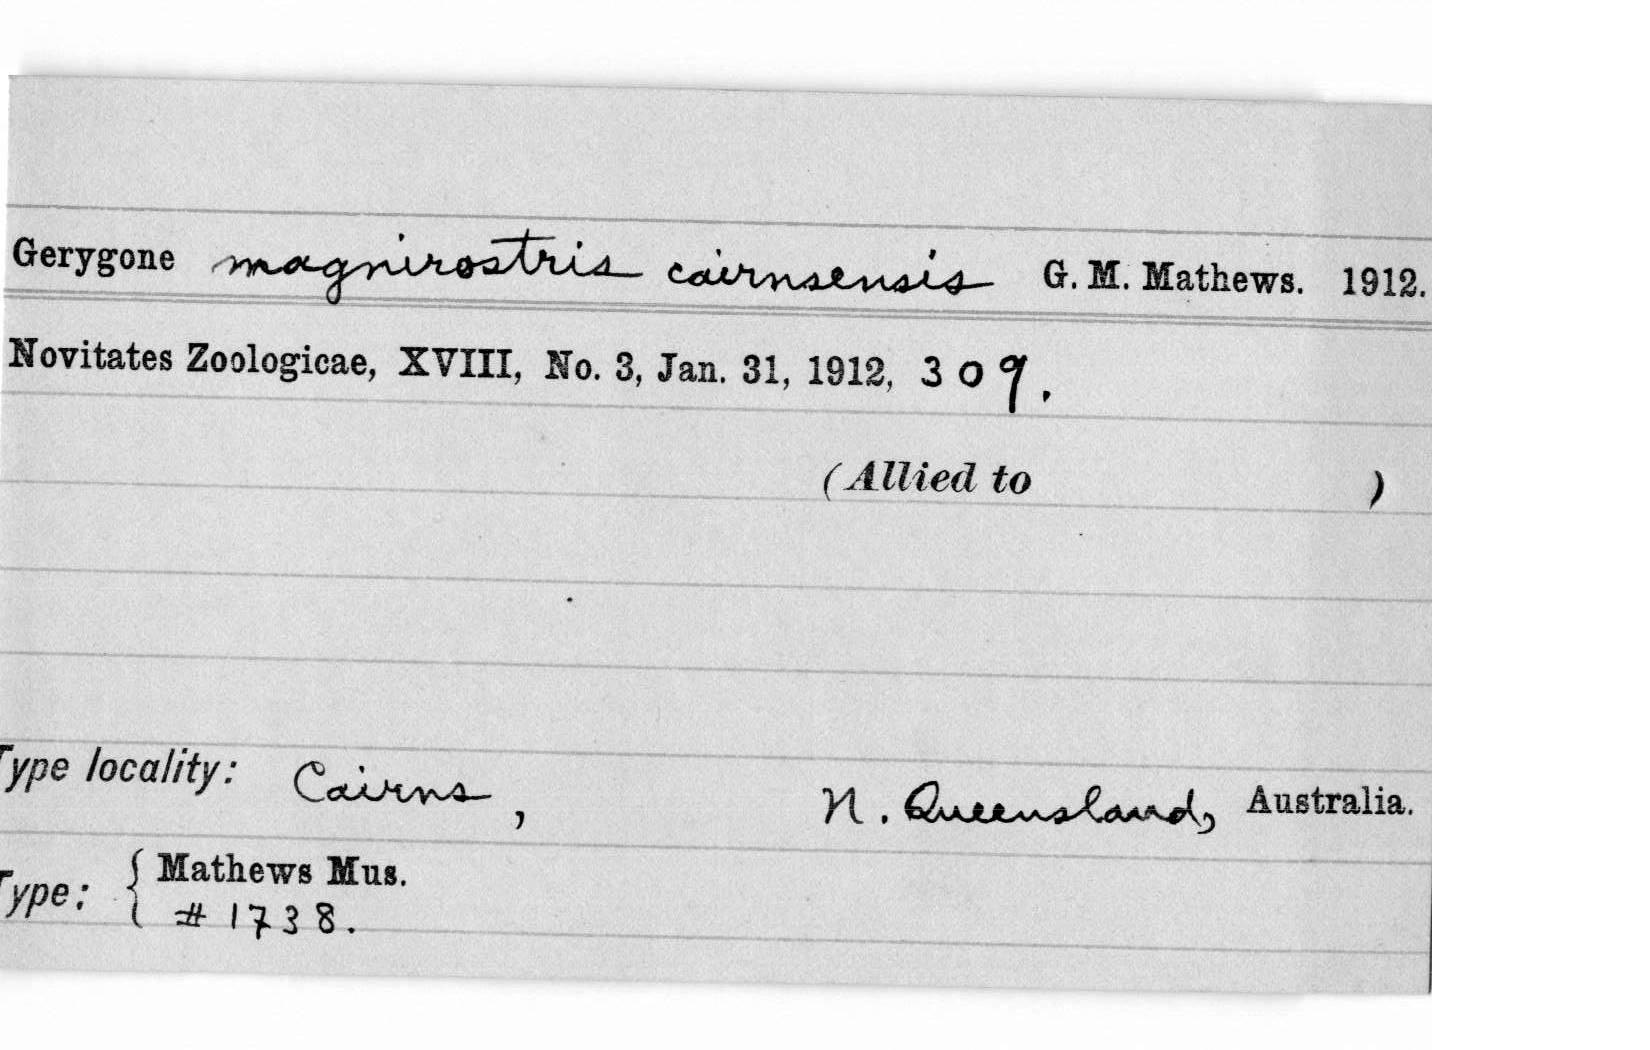 Gerygone magnirostris cairnsensis G. M. Mathews. 1912.
Novitates Zoologicae, XVIII, No. 3, Jan. 31, 1912, 309.
(Allied to )
Type locality: Cairns, N. Queensland, Australia.
Type: { Mathews Mus.
# 1738.